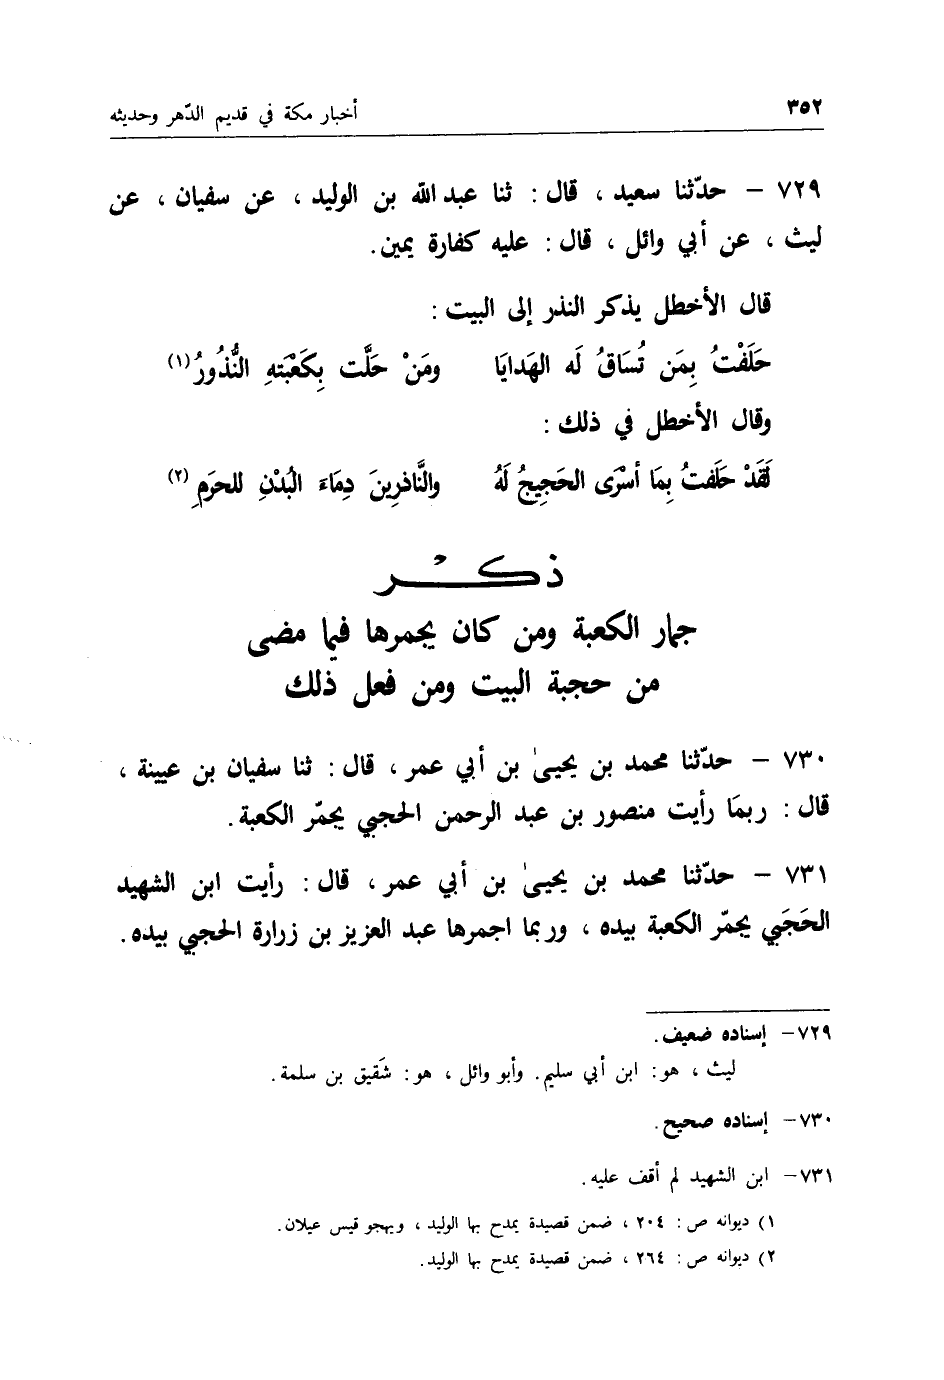 ٣٥٢ أخبار مكة في قديم الدّهر وحديثه
٧٢٩ – حدّثنا سعيد ، قال : ثنا عبد الله بن الوليد ، عن سفيان ، عن
ليث ، عن أبي وائل ، قال : عليه كفارة يمين.
قال الأخطل يذكر النذر إلى البيت :
حَلَفْتُ بِمَن تُسَاقُ لَه الهَدايَا ومَنْ حَلَّت بِكَعْبَتهِ النُّذُورُ(١)
وقال الأخطل في ذلك :
لَقَدْ حَلَفتُ بِمَا أسْرَى الحَجِيجُ لَهُ والنَّاذرِينَ دِمَاءَ البُدْنِ للحرَمِ(٢)
ذكـــر
جمار الكعبة ومن كان يجمرها فيما مضى
من حجبة البيت ومن فعل ذلك
٧٣٠ – حدّثنا محمد بن يحيىٰ بن أبي عمر ، قال : ثنا سفيان بن عيينة ،
قال : ربمَا رأيت منصور بن عبد الرحمن الحجبي يجمّر الكعبة .
٧٣١ – حدّثنا محمد بن يحيىٰ بن أبي عمر ، قال : رأيت ابن الشهيد
الحَجَبي يجمّر الكعبة بيده ، وربما اجمرها عبد العزيز بن زرارة الحجبي بيده .
٧٢٩– إسناده ضعيف .
ليث ، هو : ابن أبي سليم . وأبو وائل ، هو : شَقيق بن سلمة .
٧٣٠– إسناده صحيح .
٧٣١– ابن الشهيد لم أقف عليه .
١) ديوانه ص : ٢٠٤ ، ضمن قصيدة يمدح بها الوليد ، ويهجو قيس عيلان .
٢) ديوانه ص : ٢٦٤ ، ضمن قصيدة يمدح بها الوليد .